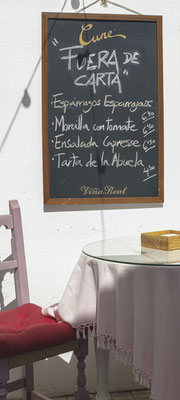 Cune
"FUERA DE
CARTA"
Esparragos Esparragaos
· Morcilla con tomate
· Ensalada Capresse
· Tarta de la Abuela
Viña Real